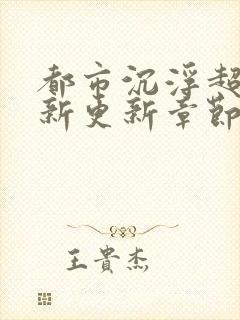 都市沉浮超
新更新章節
王貴杰